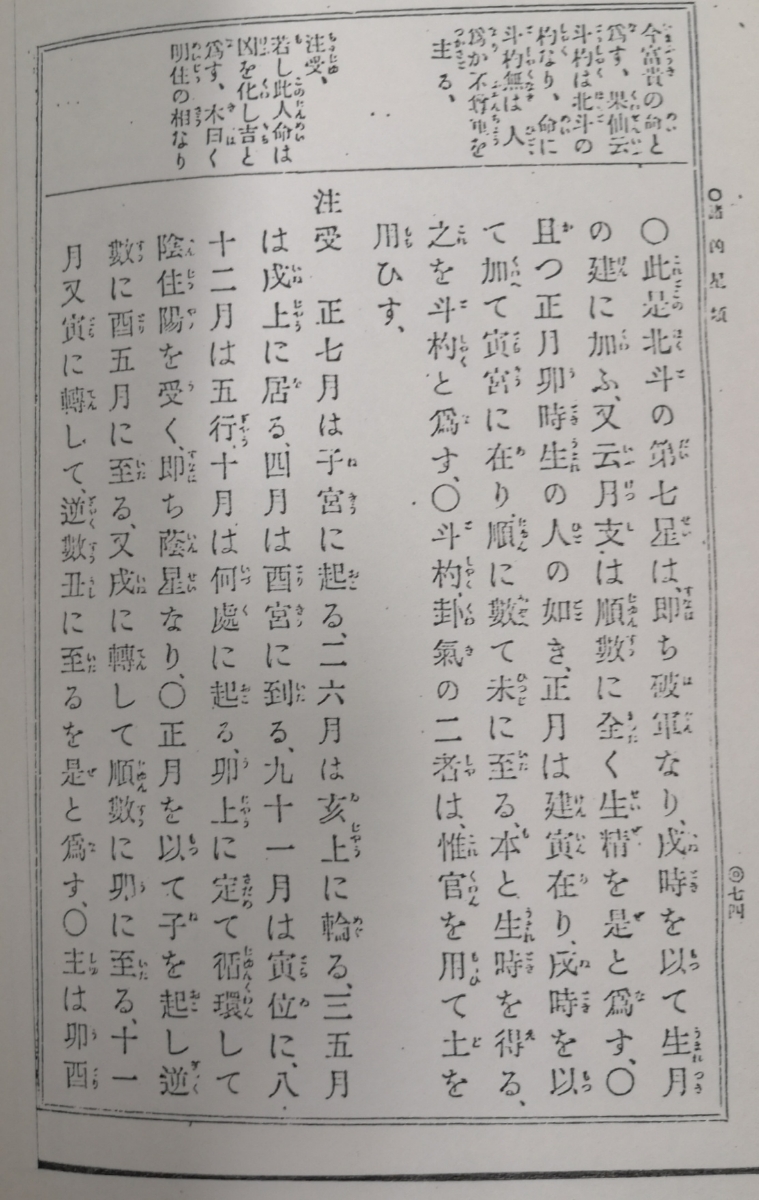 ○諸凶星類
◎七四
今富貴の命と
爲す、果仙云
斗杓は北斗の
杓なり、命に
斗杓無は人
爲か不將軍を
主る、
注受、
若し此人命は
凶を化し吉と
爲す、木曰く
明住の相なり
〇此是北斗の第七星は、即ち破軍なり、戌時を以て生月
の建に加ふ、又云月支は順數に全く生精を是と爲す、〇
且つ正月卯時生の人の如き、正月は建寅在り、戌時を以
て加て寅宮に在り、順に數て未に至る、本と生時を得る、
之を斗杓と爲す、〇斗杓、卦氣の二者は、惟官を用て土を
用ひす、
注受 正七月は子宮に起る、二六月は亥上に輪る、三五月
は戌上に居る、四月は酉宮に到る、九十一月は寅位に、八
十二月は五行、十月は何處に起る、卯上に定て循環して
陰住陽を受く、即ち蔭星なり、〇正月を以て子を起し逆
數に酉五月に至る、又戌に轉して順數に卯に至る、十一
月又寅に轉して、逆數丑に至るを是と爲す、〇主は卯酉